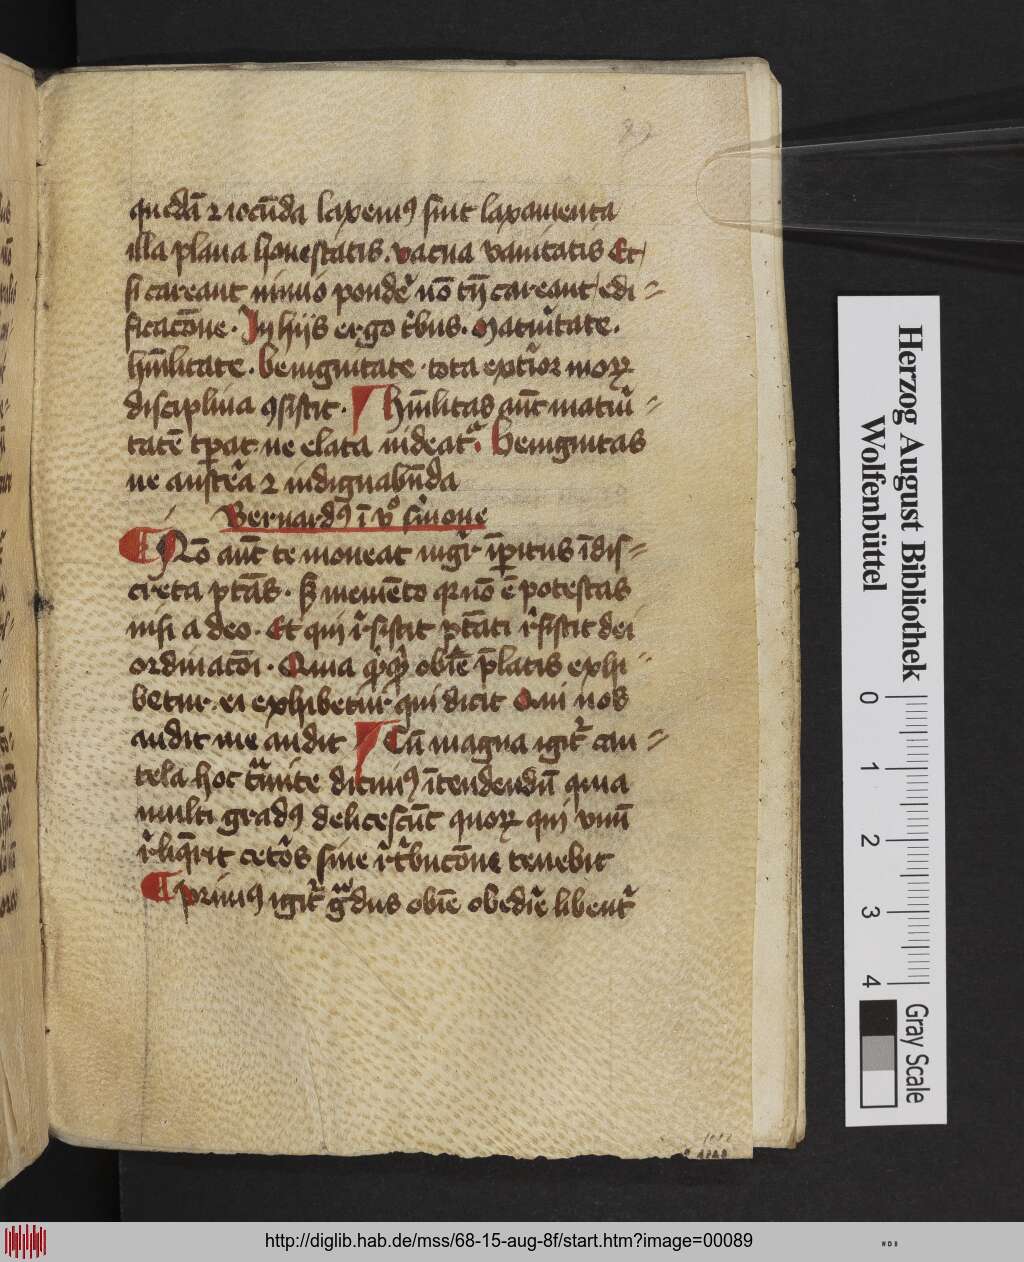 quedā ⁊ iocūda laxemꝰ sint laxamenta
illa plena honestatis. vacua vanitatis Et
si careant nimio pondeꝰ nō tn̄ careant edi=
ficacōne. In hijs ergo tͥbus. Matuͥtate.
hūilitate. benignitate. tota extͥor moꝝ
disciplina ꝯsistit. ¶ Hūilitas aūt matuͥ=
tatē tꝑat ne elata videatᷣ. Benignitas
ne austeͣ ⁊ indignabūda
Bernardꝰ ī vͦ sͫmone
¶ Nō aūt te moueat mgr̄ īꝑitus īdis=
creta ptās. sꝫ memēto qꝛ nō ē potestas
nisi a deo. Et qui rͤsistit ptāti rͤsistit dei
ordinacōi. Quia obīe p̄latis exhi=
betur. ei exhibetur qui dicit Qui uos
audit me audit ¶ Cū magna igitᷣ cau=
tela hoc tͣmite dicimꝰ ītendendū quia
multi gradꝰ delitescūt quoꝝ qui vnū
rͤliq̄rit cetōs sine rͤtͥbucōne tenebit
¶ primꝰ igitᷣ gͣdus obīe obedīe libentᷣ
Herzog August Bibliothek
Wolfenbüttel
0 1 2 3 4
Gray Scale
http://diglib.hab.de/mss/68-15-aug-8f/start.htm?image=00089